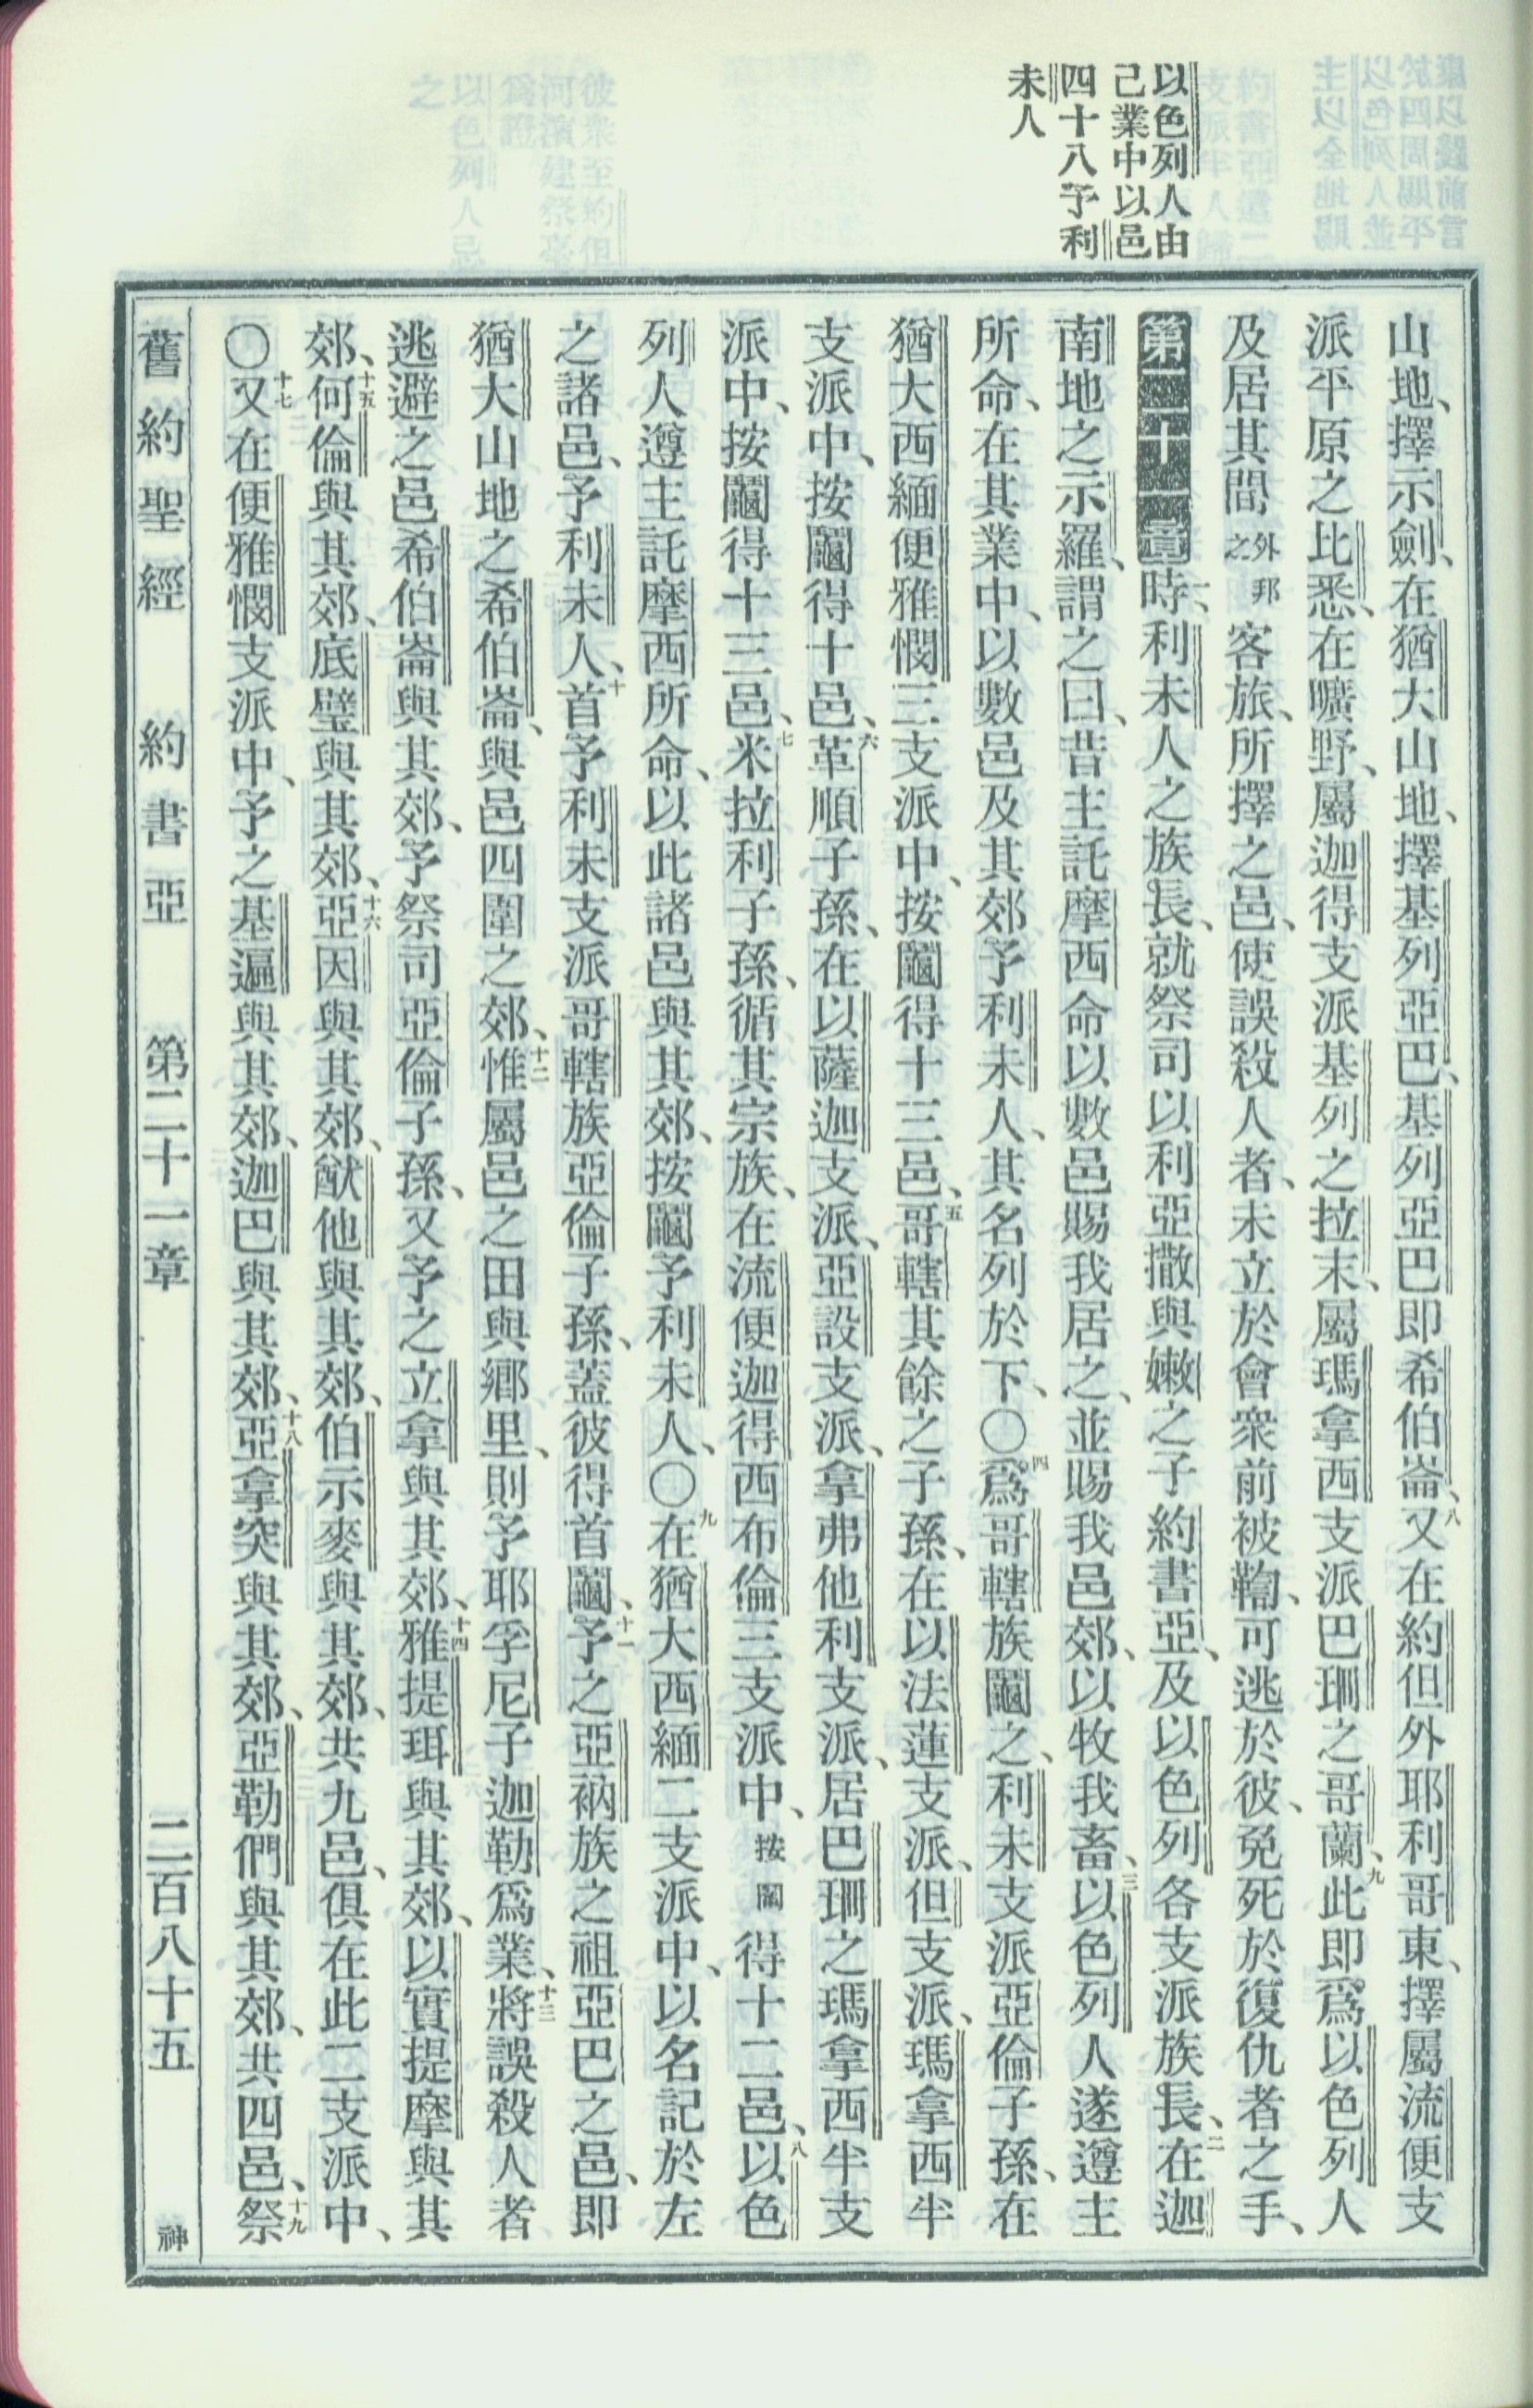 以色列人由
己業中以邑
四十八予利
未人
山地、擇示劍、在猶大山地、擇基列亞巴、基列亞巴即希伯崙、八又在約但外耶利哥東、擇屬流便支
派平原之比悉、在曠野、屬迦得支派基列之拉末、屬瑪拿西支派巴珊之哥蘭、九此即爲以色列人
及居其間之外邦客旅、所擇之邑、使誤殺人者、未立於會衆前被鞫、可逃於彼、免死於復仇者之手、
第二十一章一時、利未人之族長、就祭司以利亞撒與嫩之子約書亞、及以色列各支派族長、二在迦
南地之示羅、謂之曰、昔主託摩西命以數邑賜我居之、並賜我邑郊、以牧我畜、三以色列人遂遵主
所命、在其業中、以數邑及其郊予利未人、其名列於下、〇四爲哥轄族鬮之、利未支派亞倫子孫、在
猶大西緬便雅憫三支派中、按鬮得十三邑、五哥轄其餘之子孫、在以法蓮支派、但支派、瑪拿西半
支派中、按鬮得十邑、六革順子孫、在以薩迦支派、亞設支派、拿弗他利支派、居巴珊之瑪拿西半支
派中、按鬮得十三邑、七米拉利子孫、循其宗族、在流便迦得西布倫三支派中、按鬮得十二邑、八以色
列人遵主託摩西所命、以此諸邑與其郊、按鬮予利未人、〇九在猶大西緬二支派中、以名記於左
之諸邑、予利未人、十首予利未支派哥轄族亞倫子孫、蓋彼得首鬮、十一予之亞衲族之祖亞巴之邑、即
猶大山地之希伯崙、與邑四圍之郊、十二惟屬邑之田與鄉里、則予耶孚尼子迦勒爲業、十三將誤殺人者
逃避之邑希伯崙與其郊、予祭司亞倫子孫、又予之立拿與其郊、十四雅提珥與其郊、以實提摩與其
郊、十五何倫與其郊、底璧與其郊、十六亞因與其郊、猷他與其郊、伯示麥與其郊、共九邑、俱在此二支派中、
〇十七又在便雅憫支派中、予之基遍與其郊、迦巴與其郊、十八亞拿突與其郊、亞勒們與其郊、共四邑、十九祭
舊約聖經 約書亞 第二十一章 二百八十五 神